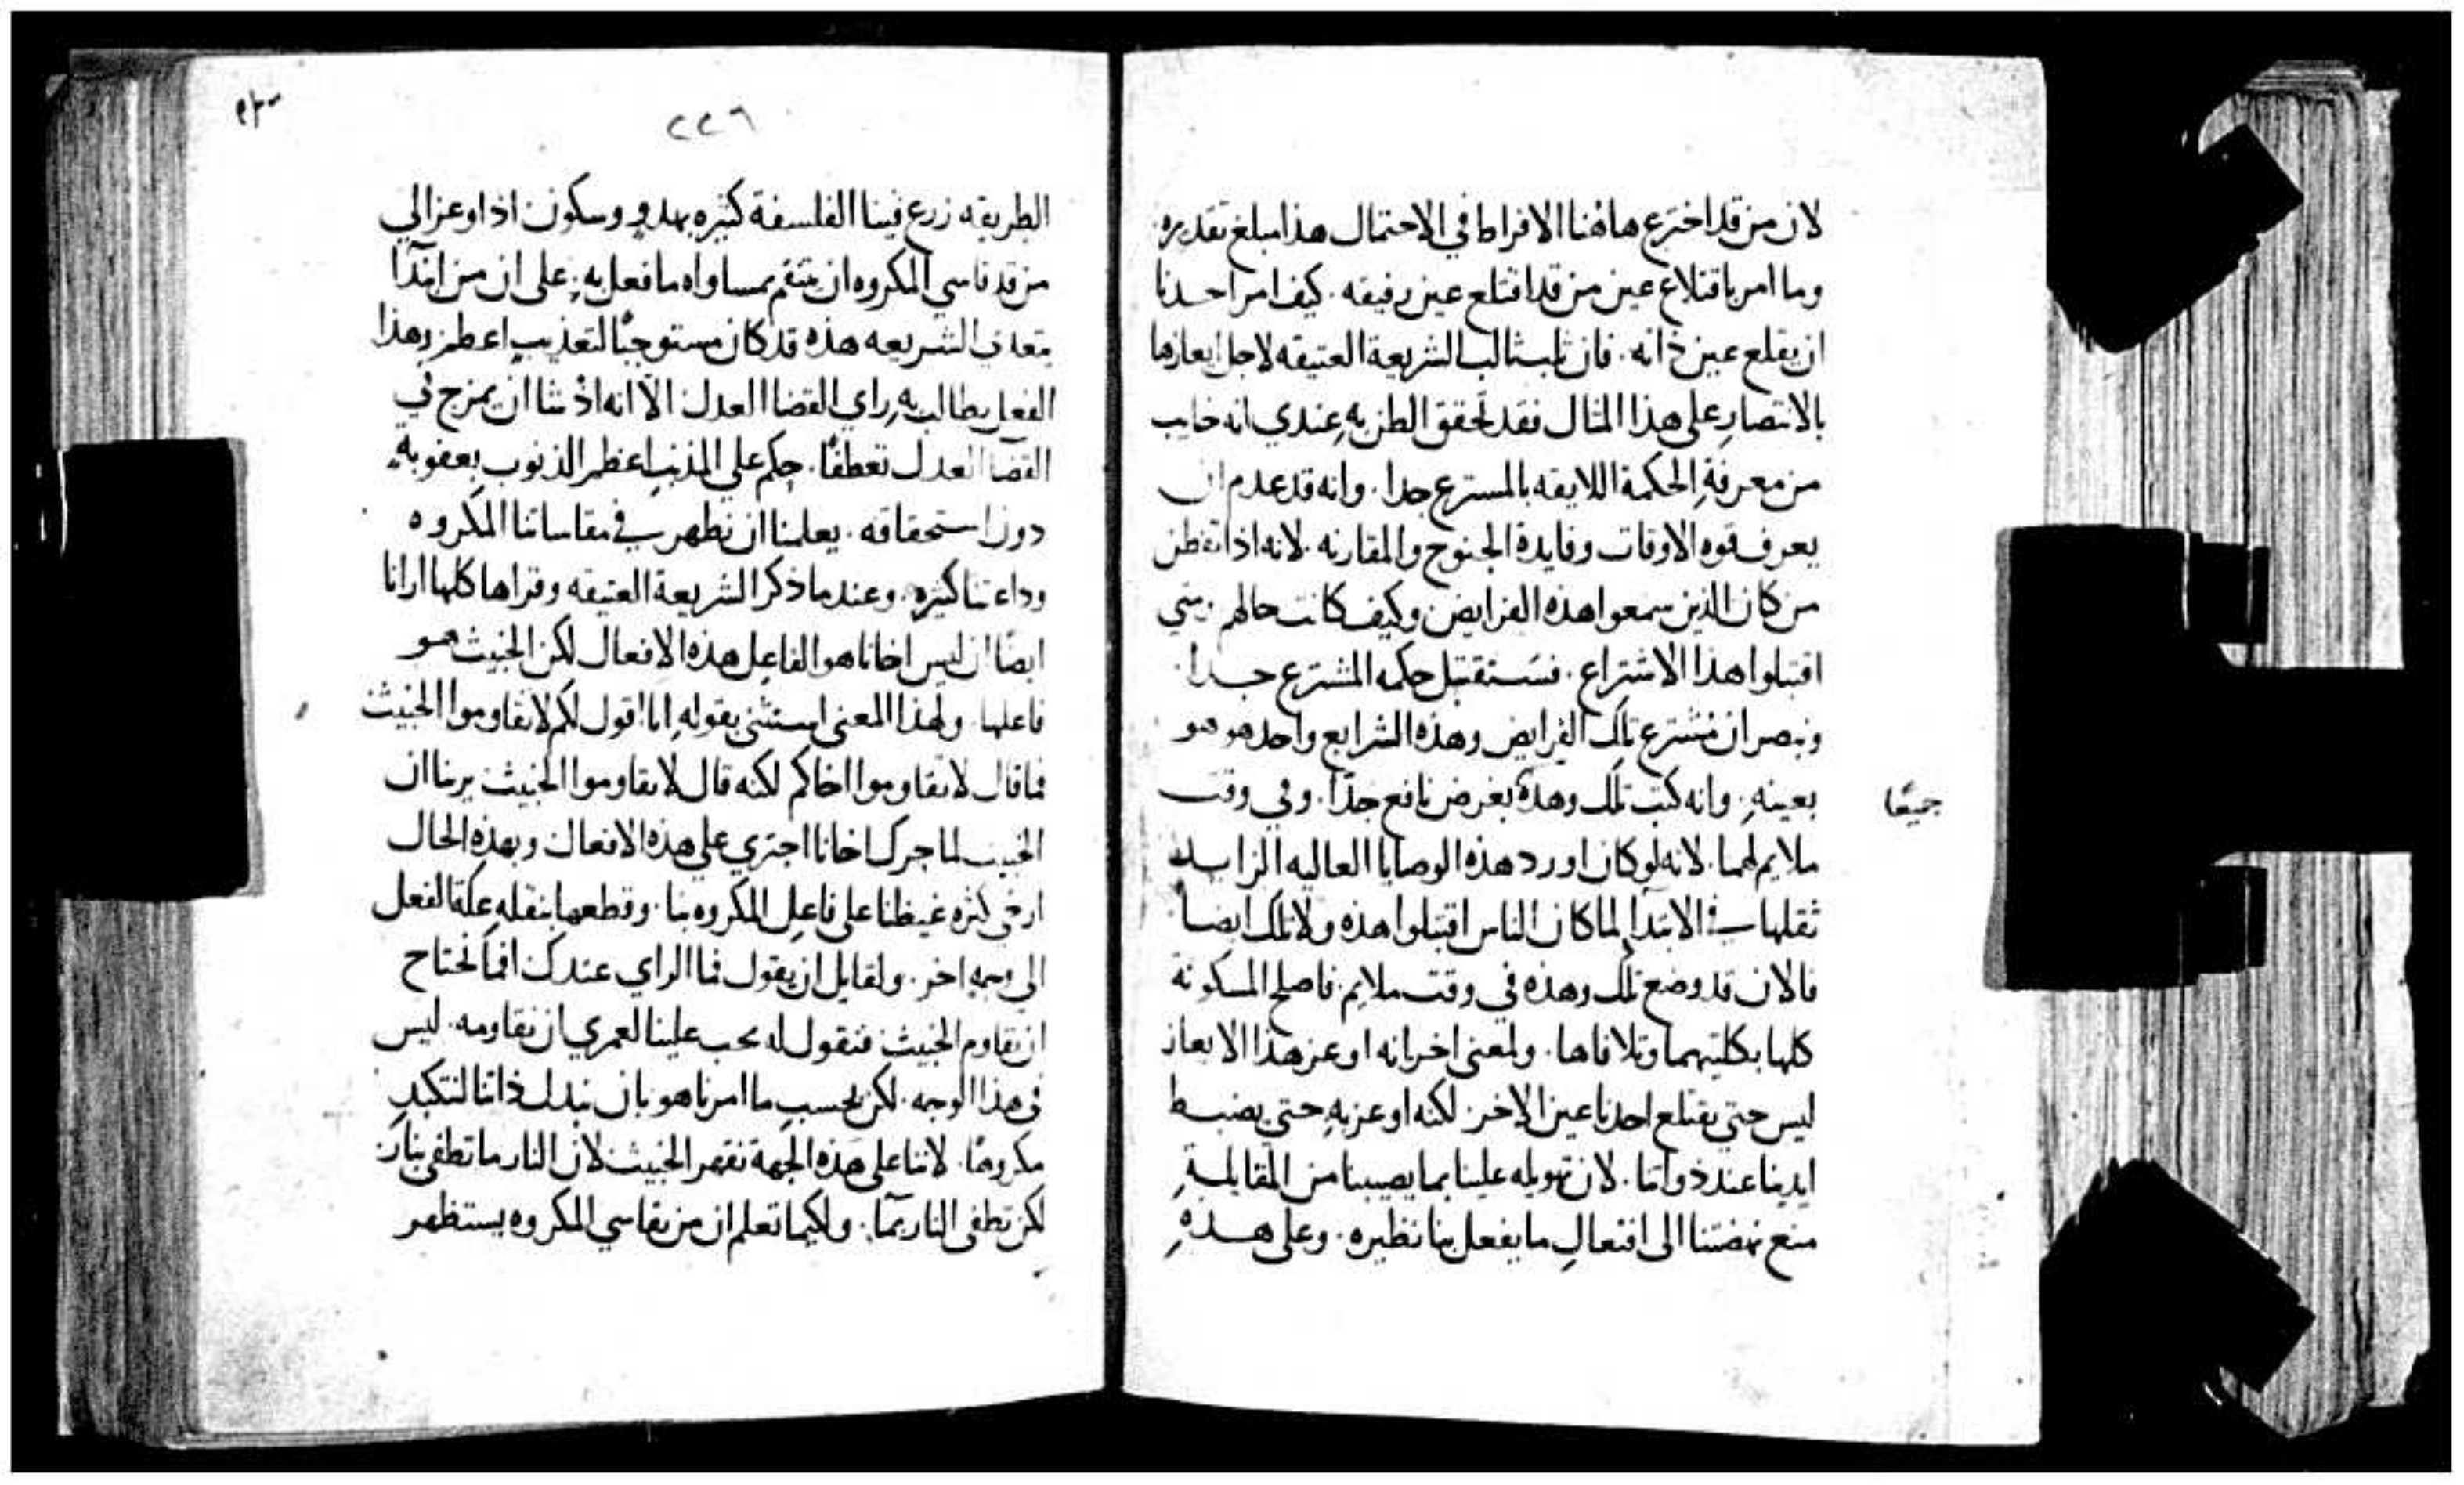 لان من قد اخترع هاهنا الافراط في الاحتمال هذا مبلغ تقديره
وما امر باقتلاع عين من قد اقتلع عين رفيقه. كيف امر احدنا
ان يقلع عين ذاته. فان ثلب ثالب الشريعة العتيقه لاجل ايعازها
بالانتصار على هذا المثال فقد تحقق الظن به عندي انه خايب
من معرفة الحكمة اللايقه بالمسترع جدا. وانه قد عدم ان
يعرف قوه الاوقات وفايدة الجنوح والمقارنه. لانه اذا تفطن
من كان الذين سمعوا هذه الفرايض وكيف كانت حالهم ومتي
اقتبلوا هذا الاشتراع. فسيستقبل حكمه المشترع جدا.
ونبصر ان مشترع تلك الفرايض وهذه الشرايع واحد هو هو
بعينه. وانه كتب تلك وهذه بغرض نافع جدًا. وفي وقت
جميعًا
ملايم لهما. لانه لو كان اورد هذه الوصايا العاليه الزايد
ثقلها في الابتدا لما كان الناس اقتبلوا هذه ولا تلك ايضا
فالان قد وضع تلك وهذه في وقت ملايم. فاصلح المسكونة
كلها بكلتيهما وتلافاها. ولمعنى اخر انه اوعز هذا الايعاز
ليس حتى يقتلع احدنا عين الاخر. لكنه اوعز به حتى يضبط
ايدينا عند ذواتنا. لان تهويله علينا بما يصيبنا من المقابلة
منع نهضتنا الى افتعال ما يفعل بنا نظيره. وعلى هذه
٢٢٦
الطريقه زرع فينا الفلسفة كثيره بهدو وسكون اذ اوعز الي
من قد قاسي المكروه ان ينتقم بمساواه ما فعل به. على ان من ابتدا
بتعدي الشريعه هذه قد كان مستوجبًا لتعذيب اعظم وهذا
الفعل يطالب به راي القضا العدل الا انه اذ شا ان يمزج في
القضا العدل تعطفًا. حكم على المذنب اعظم الذنوب بعقوبه
دون استحقاقه. يعلمنا ان نظهر في مقاساتنا المكروه
وداعتنا كثيره. وعند ما ذكر الشريعة العتيقه وقراها كلها ارانا
ايضًا ان ليس اخانا هو الفاعل هذه الافعال لكن الخبيث هو
فاعلها. ولهذا المعنى استثنى بقوله انا اقول لكم لا تقاوموا الخبيث
فما قال لا تقاوموا اخاكم لكنه قال لا تقاوموا الخبيث يرينا ان
الخبيث لما حرك اخانا اجتري على هذه الافعال وبهذه الحال
ارخى كثره غيظنا على فاعل المكروه بنا. وقطعها بنقله علة الفعل
الى وجه اخر. ولقايل ان يقول فما الراي عندك افما نحتاج
ان نقاوم الخبيث. فنقول له يجب علينا لعمري ان نقاومه. ليس
في هذا الوجه. لكن بحسب ما امرنا هو بان نبدل ذاتنا لتتكبد
مكروهًا. لاننا على هذه الجهة نقهر الخبيث لان النار ما تطفى بنار
لكن تطفى النار بما. ولكيما تعلم ان من يقاسي المكروه يستظهر